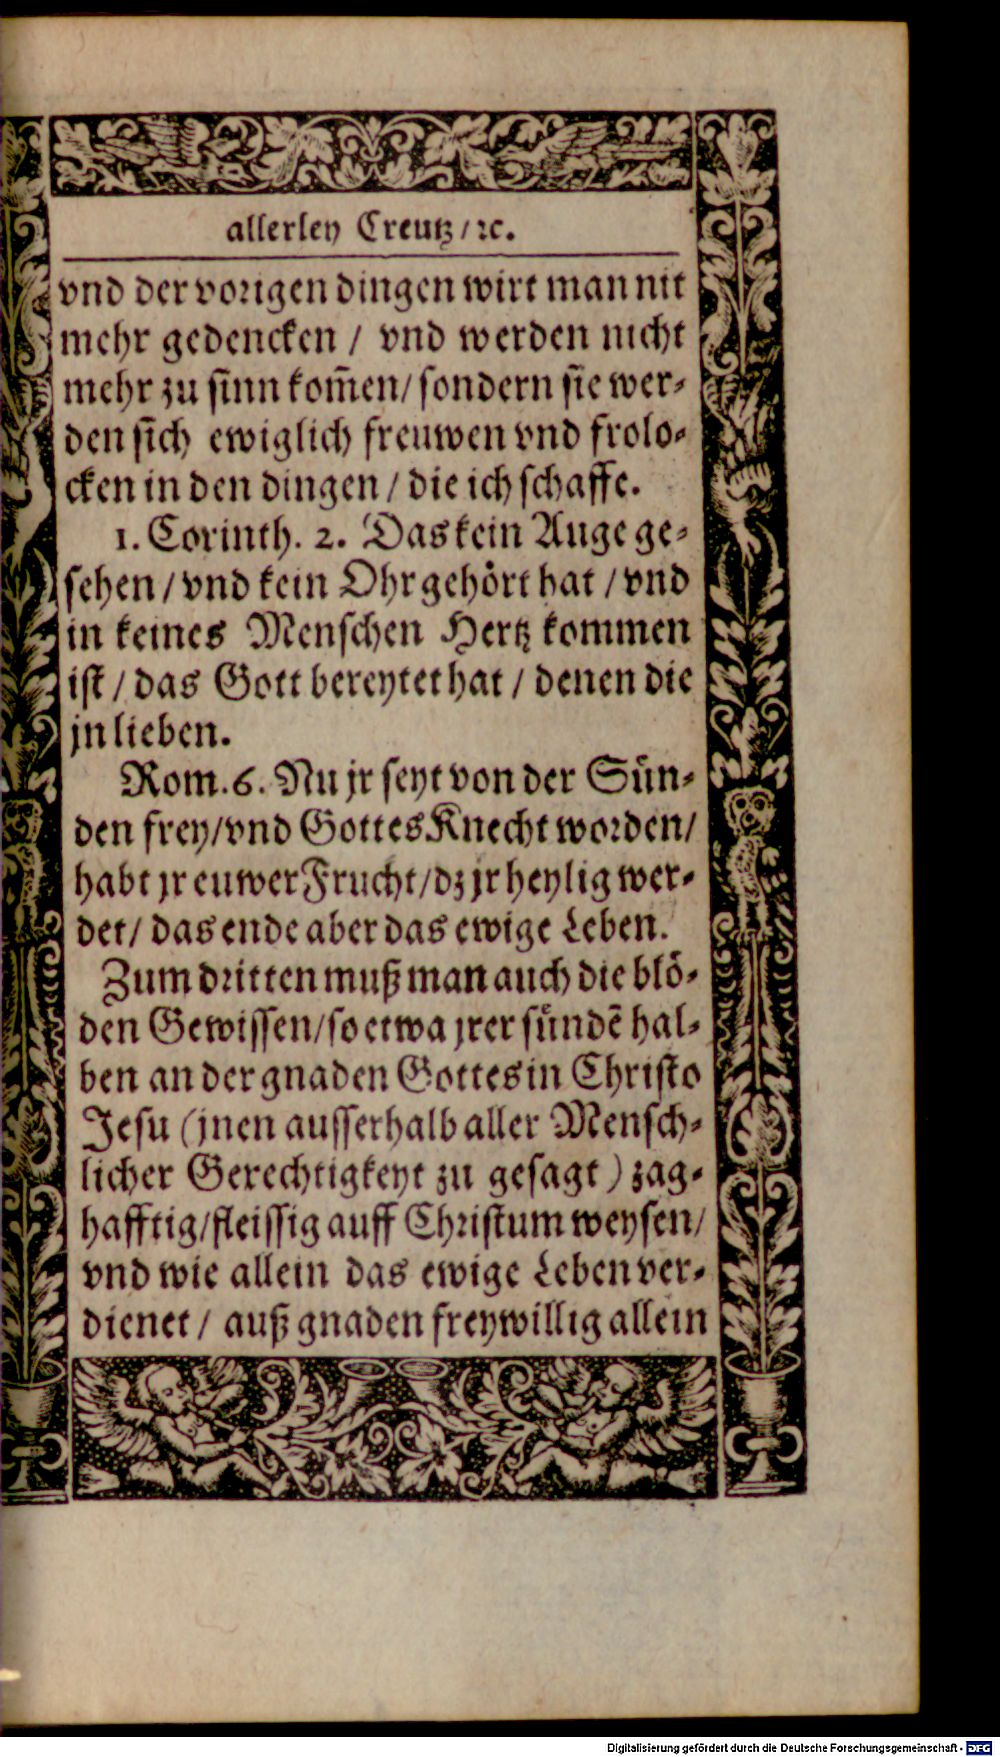 allerley Creutz / ꝛc.
vnd der vorigen dingen wirt man nit
mehr gedencken / vnd werden nicht
mehr zu sinn kom̃en / sondern sie wer⸗
den sich ewiglich freuwen vnd frolo⸗
cken in den dingen / die ich schaffe.
1. Corinth. 2. Das kein Auge ge⸗
sehen / vnd kein Ohr gehoͤrt hat / vnd
in keines Menschen Hertz kommen
ist / das Gott bereytet hat / denen die
jn lieben.
Rom. 6. Nu jr seyt von der Suͤn⸗
den frey / vnd Gottes Knecht worden /
habt jr euwer Frucht / dz jr heylig wer⸗
det / das ende aber das ewige Leben.
Zum dritten muß man auch die bloͤ⸗
den Gewissen / so etwa jrer suͤndẽ hal⸗
ben an der gnaden Gottes in Christo
Jesu (jnen ausserhalb aller Mensch⸗
licher Gerechtigkeyt zu gesagt) zag⸗
hafftig / fleissig auff Christum weysen /
vnd wie allein das ewige Leben ver⸗
dienet / auß gnaden freywillig allein
Digitalisierung gefördert durch die Deutsche Forschungsgemeinschaft - DFG